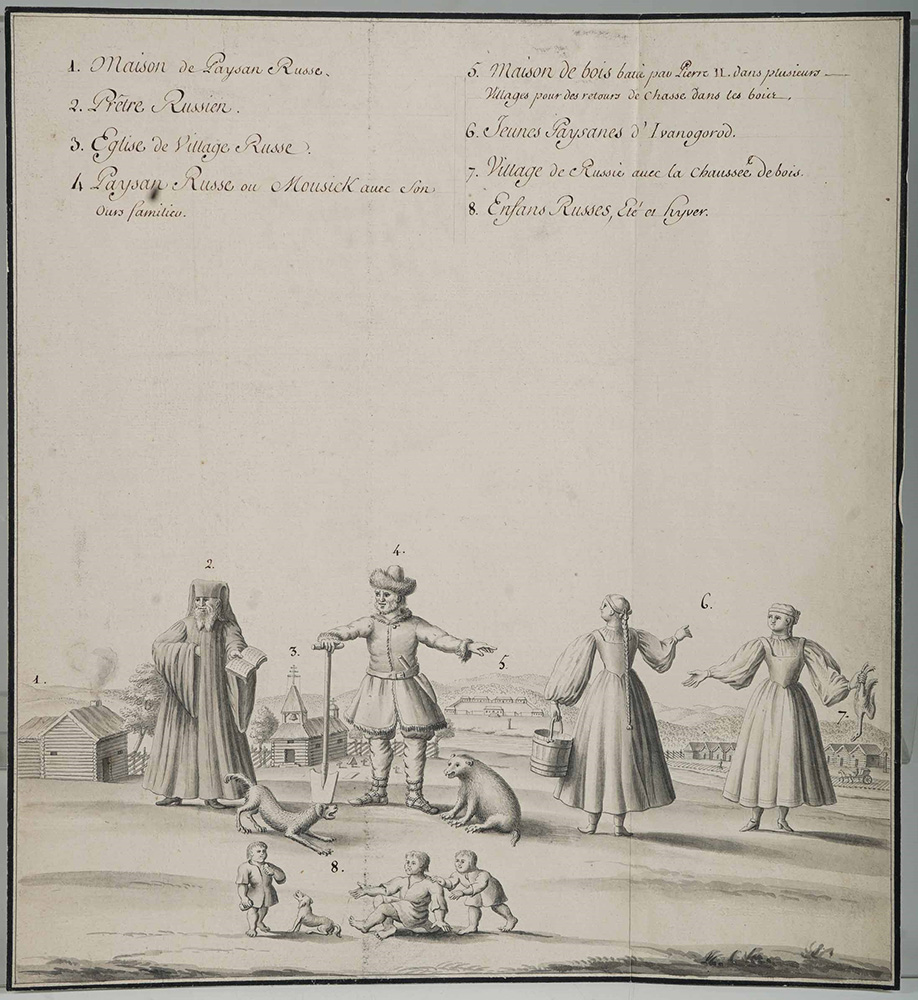 1. Maison de Paysan Russe.
2. Prêtre Russien.
3. Eglise de Village Russe.
4 Paysan Russe ou Mousick avec Son
Ours familier.
5. Maison de bois bati par Pierre II. dans plusieurs
Villages pour des retours de Chasse dans les boies.
6. Jeunes Paysanes d'Ivanogorod.
7. Village de Russie avec la chaussée de bois.
8. Enfans Russes, Eté et hyver.
1.
2.
3.
4.
5.
6.
7.
8.